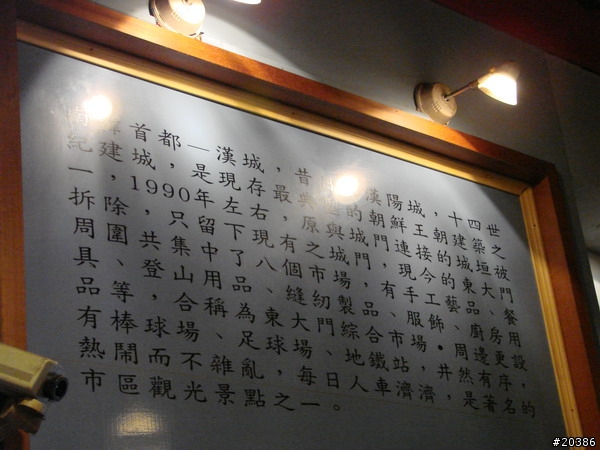 韓首都—漢城，昔漢陽城，十四世
紀建城，是現存最典型的朝鮮王朝建築之
一，1990年左右，原與城門連接的城垣被
拆除，只留下現有之城門，現今的東大門
周圍，共集中了八個市場，有手工藝品、餐
具、登山用品、縫紉製品、服飾、廚房用
品等合稱為東大門綜合市場。周邊更設
有棒球場、足球場、地鐵站，井然有序，
熱鬧而不雜亂，每日人車濟濟，是著名的
市區觀光景點之一。
#20386